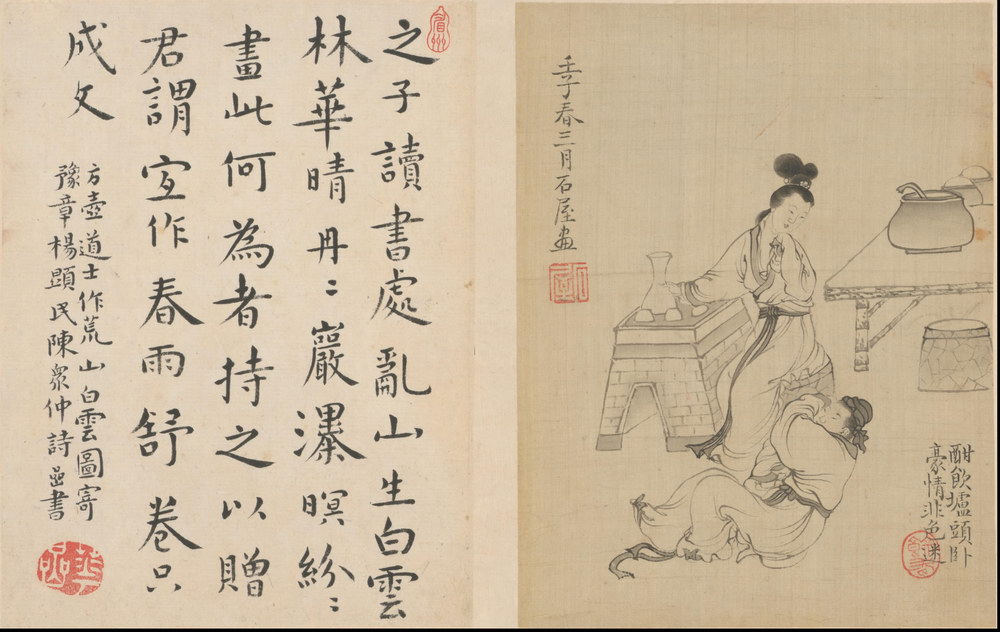 酣飲壚頭卧
豪情非色迷
壬子春三月石屋畫
之子讀書處亂山生白雲
林華晴丹〻巖瀑暝紛〻
畫此何為者持之以贈
君謂宜作春雨舒卷只
成文
方壺道士作荒山白雲圖寄
豫章楊顯民陳眾仲詩嵒書